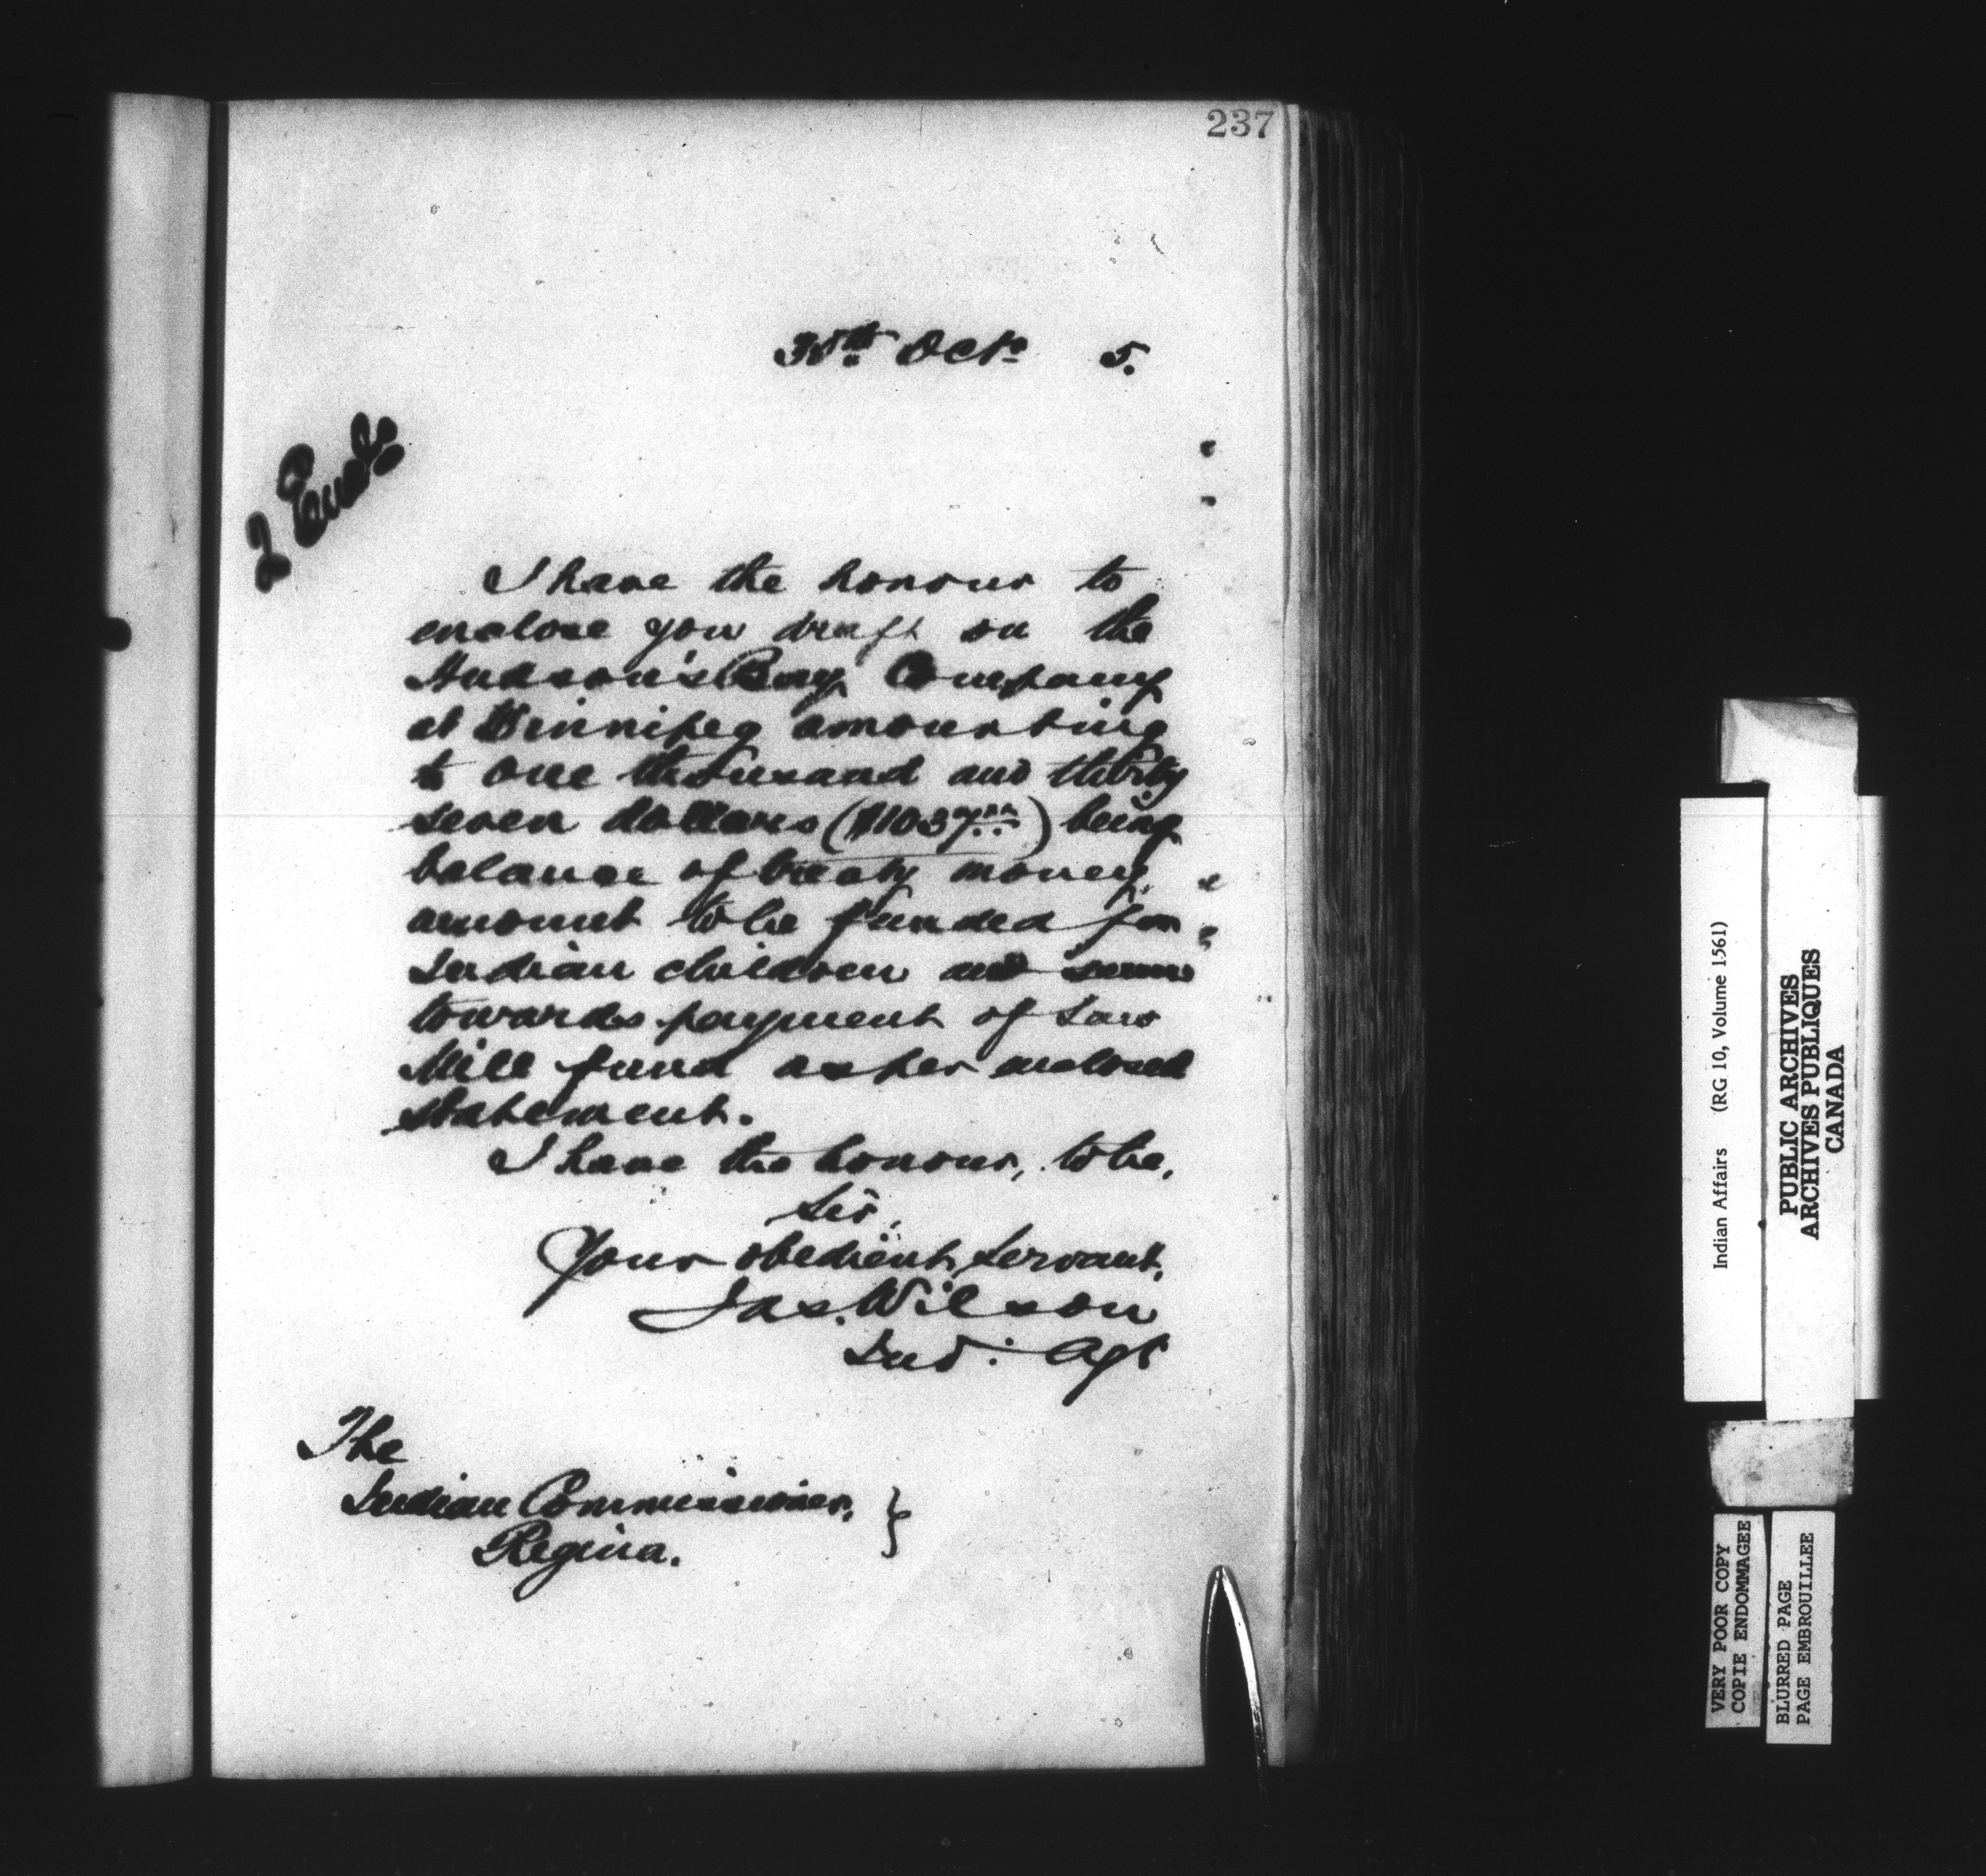 237
30th Oct. 5.
2 Encls
I have the honour to
enclose you draft on the
Hudson's Bay Company
at Winnipeg amounting
to one thousand and thirty
seven dollars ($1037.00) being
balance of treaty money,
amount to be funded for
Indian children and sum
towards payment of Saw
Mill fund as per enclosed
statement.
I have the honour, to be,
Sir,
Your obedient Servant,
Jas. Wilson
Ind: Agt
The
Indian Commissioner, }
Regina.
Indian Affairs (RG 10, Volume 1561)
PUBLIC ARCHIVES
ARCHIVES PUBLIQUES
CANADA
VERY POOR COPY
COPIE ENDOMMAGEE
BLURRED PAGE
PAGE EMBROUILLEE